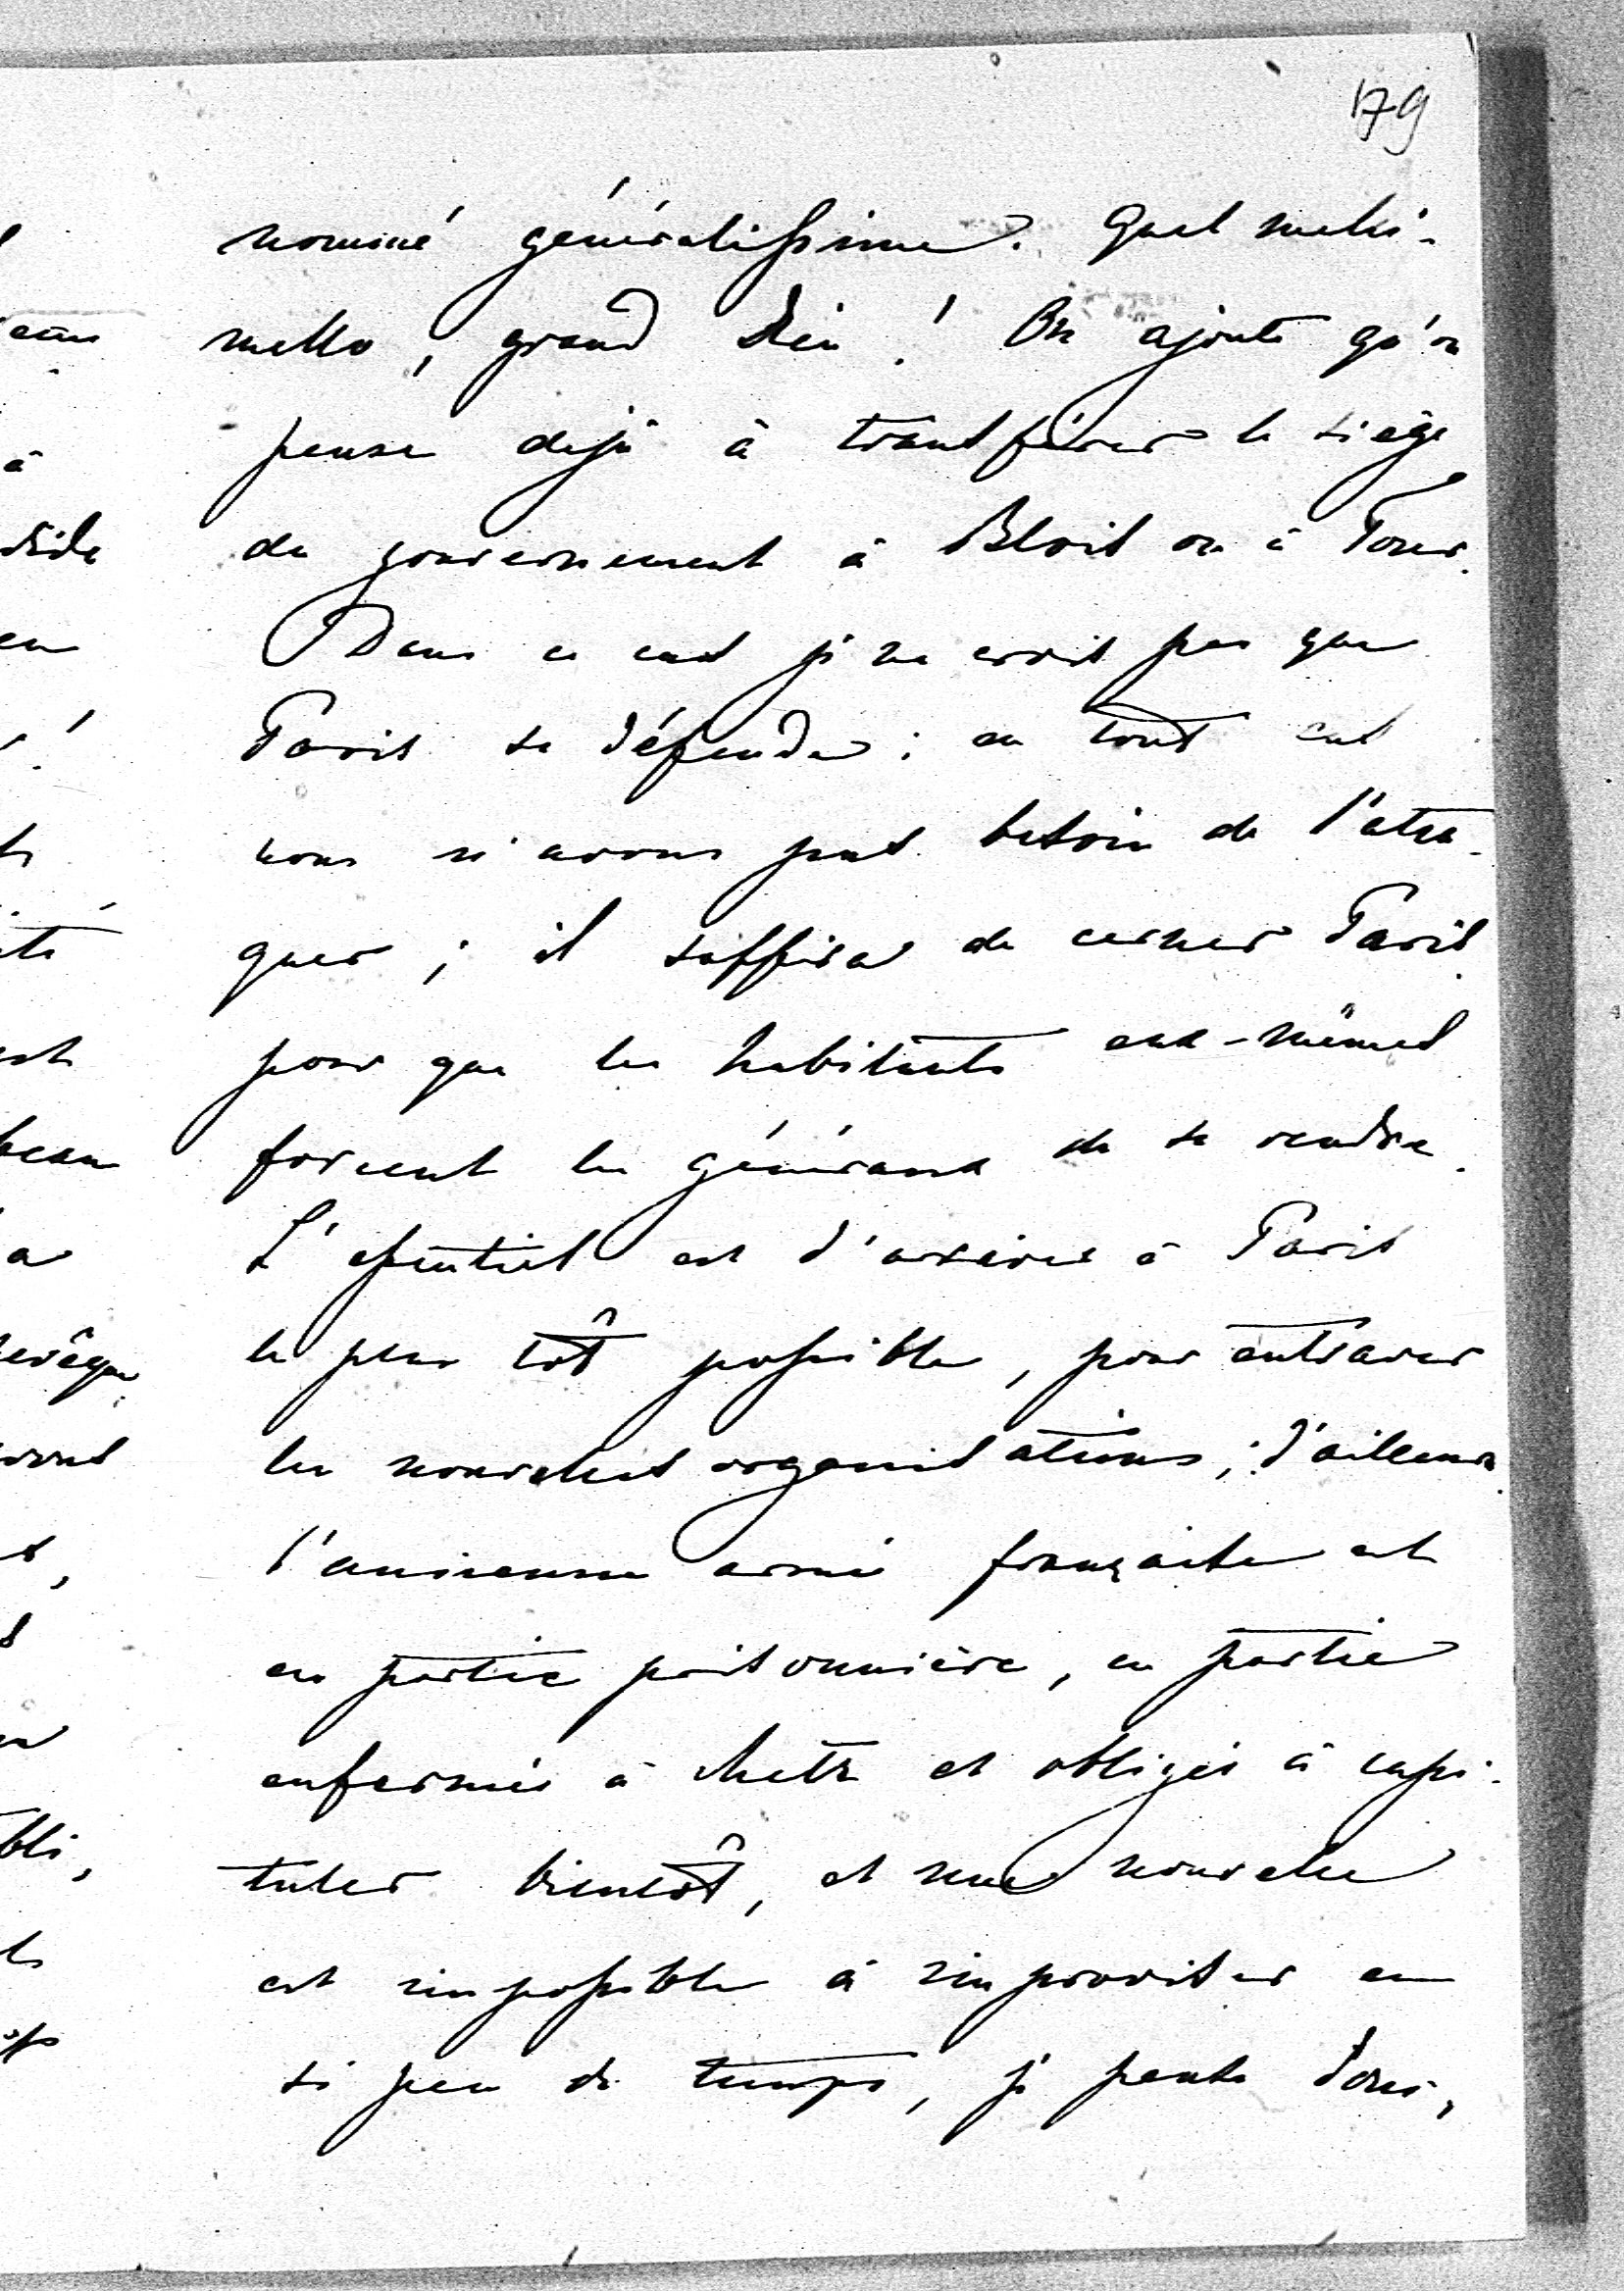 179
nommé généralissime. Quel méli-
mello, grand Dieu! On ajoute qu'on
pense dejà à transférer le siège
du gouvernement à Blois ou à Tours.
Dans ce cas je ne crois pas que
Paris se défende; en tout cas
nous n'avons pas besoin de l'atta-
quer; il suffira de cerner Paris
pour que les habitants eux-mêmes
forcent les généraux de se rendre.
L'essentiel est d'arriver à Paris
le plus tôt possible, pour entraver
les nouvelles organisations; d'ailleurs
l'ancienne armée française est
en partie prisonnière, en partie
enfermée à Metz et obligée à capi-
tuler bientôt, et une nouvelle
est impossible à improviser en
si peu de temps, je pense donc,